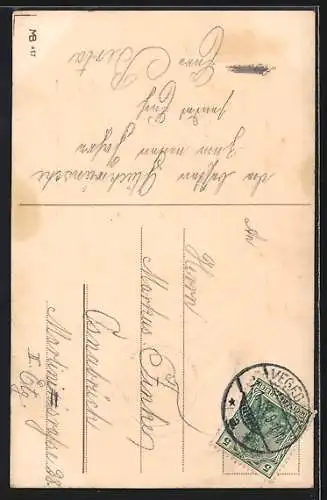 MB 417
die besten Glückwünsche
zum neuen Jahre
sendet Euch
Eure Berta
An
Herrn
Markus Finke
Osnabrück
Martini
20
II. Etg.
VEGES
5
5